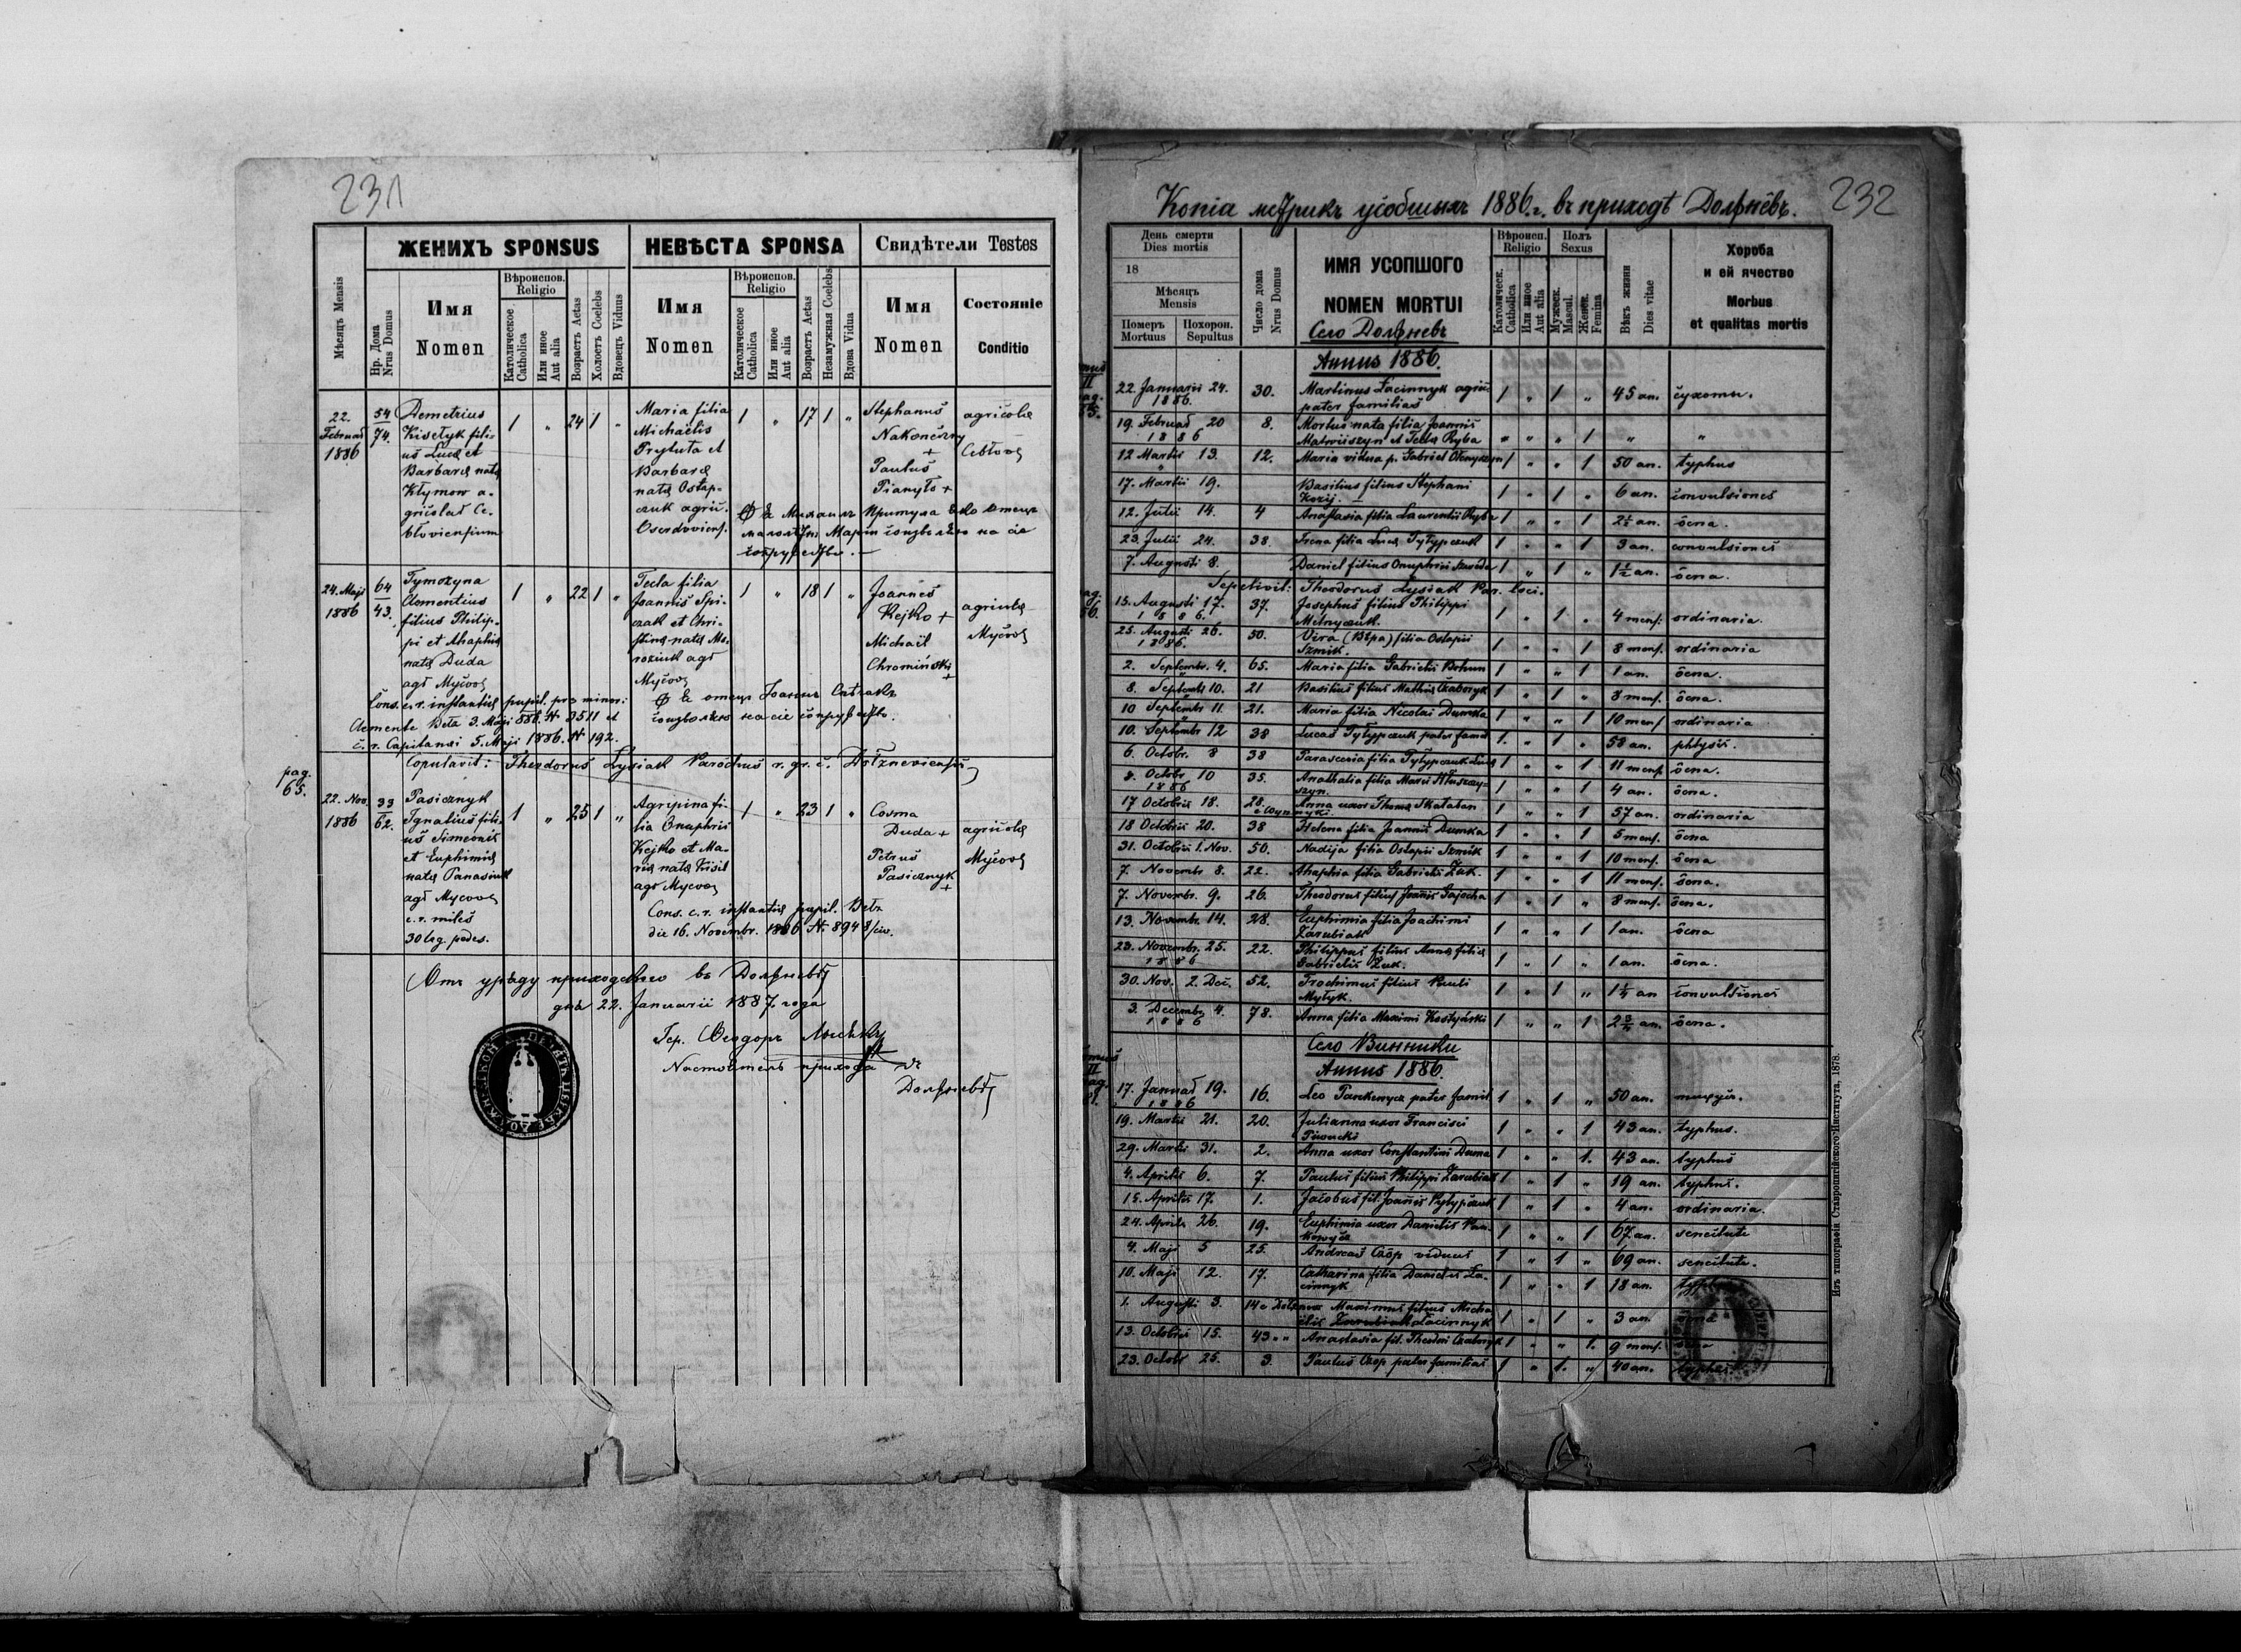 231
ЖЕНИХЪ SPONSUS
НЕВѢСТА SPONSA
Свидѣтели Testes
Мѣсяцъ Mensis
Нр. Дома Nrus Domus
Имя Nomen
Вѣроиспов. Religio
Католическое Catholica
Или иное Aut alia
Возрастъ Aetas
Холостъ Coelebs
Вдовецъ Viduus
Имя Nomen
Вѣроиспов. Religio
Католическое Catholica
Или иное Aut alia
Возрастъ Aetas
Незамужная Coelebs
Вдова Vidua
Имя Nomen
Состояніе Conditio
22. Februar 1886
54 74.
Demetrius
Kisełyk fili-
us Lucæ et
Barbaræ natæ
Kłymow a-
gricolæ Ce-
błoviensium
1 " 24 1 "
Maria filia
Michaelis
Prytuła et
Barbaræ
natæ Ostap-
czuk agric.
Oserdoviens.
1 " 17 1 "
Stephanus
Nakoneczny
+
Paulus
Pianyło +
agricolæ
Cebłovæ
24. Maji 1886
64 43.
Tymozyna
Clementius
filius Philip-
pi et Ahaphiæ
natæ Duda
agr Mycovæ
1 " 22 1 "
Tecla filia
Joannis Spi-
czak et Chri-
stinæ natæ Mo-
roziuk agr
Mycovæ
1 " 18 1 "
Joannes
Kejko +
Michail
Chromiński
+
agricolæ
Mycovæ
Cons. c. r. instantiæ pupil. pro minor:
Clemente Bełz 3. Maji 886. N 2511 et
c. r. Capitanei 5. Maji 1886. N 192.
Copulavit: Theodorus Łysiak Parochus r. gr. c. Dołzneviensis
pag. 65.
22. Nov. 1886
33 62.
Pasicznyk
Ignatius fili-
us Simeonis
et Euphimiæ
natæ Panasiuk
agr Mycovæ
c. r. miles
30 leg. pedes.
1 " 25 1 "
Agripina fi-
lia Onuphrii
Kejko et Ma-
riæ natæ Kisil
agr Mycovæ
1 " 23 1 "
Cosma
Duda +
Petrus
Pasicznyk
+
agricolæ
Mycovæ
Cons. c. r. instantiæ pupil. Bełz
die 16. Novembr. 1886 N. 8948/civ.
дня 22. Januarii 1887. года
232
Копіа метрикъ усобшыхъ 1886. г. въ приходѣ Должневѣ.
День смерти Dies mortis
18
Мѣсяцъ Mensis
Померъ Mortuus
Похорон. Sepultus
Число дома Nrus Domus
ИМЯ УСОПШОГО
NOMEN MORTUI
Вѣроисп. Religio
Католическ. Catholica
Или иное Aut alia
Полъ Sexus
Мужеск. Mascul.
Женск. Femina
Вѣкъ жизни Dies vitae
Хороба
и ей ячество
Morbus
et qualitas mortis
Село Должневъ
Annus 1886.
22. Januarii 24. 1886. 30. Martinus Łacinnyk agric. pater familias 1 " 1 " 45 an. сухоты.
19. Februar 20 1886 8. Mortus nata filia Joannis Matwiiszyn et Teclæ Ryba " " " 1 " "
12 Martii 13. 12. Maria vidua p. Gabriel Ołenyczyn 1 " " 1 50 an. typhus
17. Martii 19. Basilius filius Stephani Kozij. 1 " 1 " 6 an. convulsiones
12. Julii 14. 4 Anastasia filia Laurentii Ryba 1 " " 1 2½ an. ôспа.
23. Julii 24. 38. Irena filia Lucæ Tytypczuk 1 " " 1 3 an. convulsiones
7. Augusti 8. Daniel filius Onuphrii Szweda 1 " 1 " 1½ an. ôспа.
Sepelivit: Theodorus Łysiak Par. loci.
15. Augusti 17. 1886. 37. Josephus filius Philippi Melnyczuk. 1 " 1 " 4 mens. ordinaria.
25. Augusti 26. 1886. 50. Vira (Вѣра) filia Ostapii Szmik. 1 " " 1 8 mens. ordinaria
2. Septembr. 4. 65. Maria filia Gabrielis Bohun 1 " " 1 1 an. ôспа.
8. Septembr 10. 21 Basilius filius Mathiæ Czaboryk 1 " 1 " 8 mens. ôспа.
10 Septembr 11. 21. Maria filia Nicolai Dumka 1 " " 1 10 mens ordinaria
10. Septembr 12 38 Lucas Tytypczuk pater famil 1. " 1 " 58 an. phtysis.
6. Octobr. 8 38 Parascevia filia Tytypczuk Lucæ 1 " " 1 11 mens ôспа.
8. Octobr 10 1886 35. Anathalia filia 1 " " 1 4 an. ôспа.
17 Octobris 18. 28. Anna uxor Thomæ Skataban 1 " " 1 57 an. ordinaria
18 Octobris 20. 38 Helena filia Joannis Dumka 1 " " 1 5 mens. ôспа
31. Octobris 1. Nov. 50. Nadija filia Ostapii Szmik 1 " " 1 10 mens. ôспа
7. Novembr 8. 22. Ahaphia filia Gabrielis Żuk. 1 " " 1 11 mens. ôспа.
7. Novembr. 9. 26. Theodorus filius Joannis Gajocha 1 " 1 " 8 mens. ôспа.
13. Novembr 14. 28. Euphimia filia Joachimi Zarubiak 1 " " 1 1 an. ôспа
23. Novembr. 25. 1886 22. Philippus filius Annæ filiæ Gabrielis Żuk. 1 " 1 " 1 an. ôспа.
30. Nov. 2. Dec. 52. Trochimus filius Pauli Mytyk. 1 " 1 " 1¼ an convulsiones
3. Decembr 4. 1886 78. Anna filia Maximi Kostyński 1 " " 1 2 an. ôспа.
Село Винники
Annus 1886.
17. Januar 19. 1886 16. Leo Pankewycz pater famil 1 " 1 " 50 an.
19. Martii 21. 20. Julianna uxor Francisci Piwucki 1 " " 1 43 an. typhus.
29. Martii 31. 2. Anna uxor Constantini Duma 1 " " 1. 43 an. typhus
4. Aprilis 6. 7. Paulus filius Philippi Zarubiak 1 " 1 " 19 an. typhus.
15. Aprilis 17. 1. Jacobus fil. Joannis Pytypczuk 1 " 1 " 4 an. ordinaria.
24. Aprilis 26. 19. Euphimia uxor Danielis Pankowycz 1 " " 1 67 an. senectute
4. Maji 5 25. Andreas Czôp viduus 1 " 1 " 69 an. senectute.
10. Maji 12. 17. Catharina filia Danielis Łacinnyk 1 " " 1 18 an. typhus
1. Augusti 3. 14 Maximus filius Michaelis Łacinnyk 1 " 1 " 3 an. ôспа
13. Octobris 15. 43 " " Anastasia fil. Theodori Czaboryk 1 " " 1. 9 mens. ôспа
23. Octobr 25. 3. Paulus Czop pater familias 1 " 1. " 40 an. typhus
Изъ типографіи Ставропигійского Института, 1878.